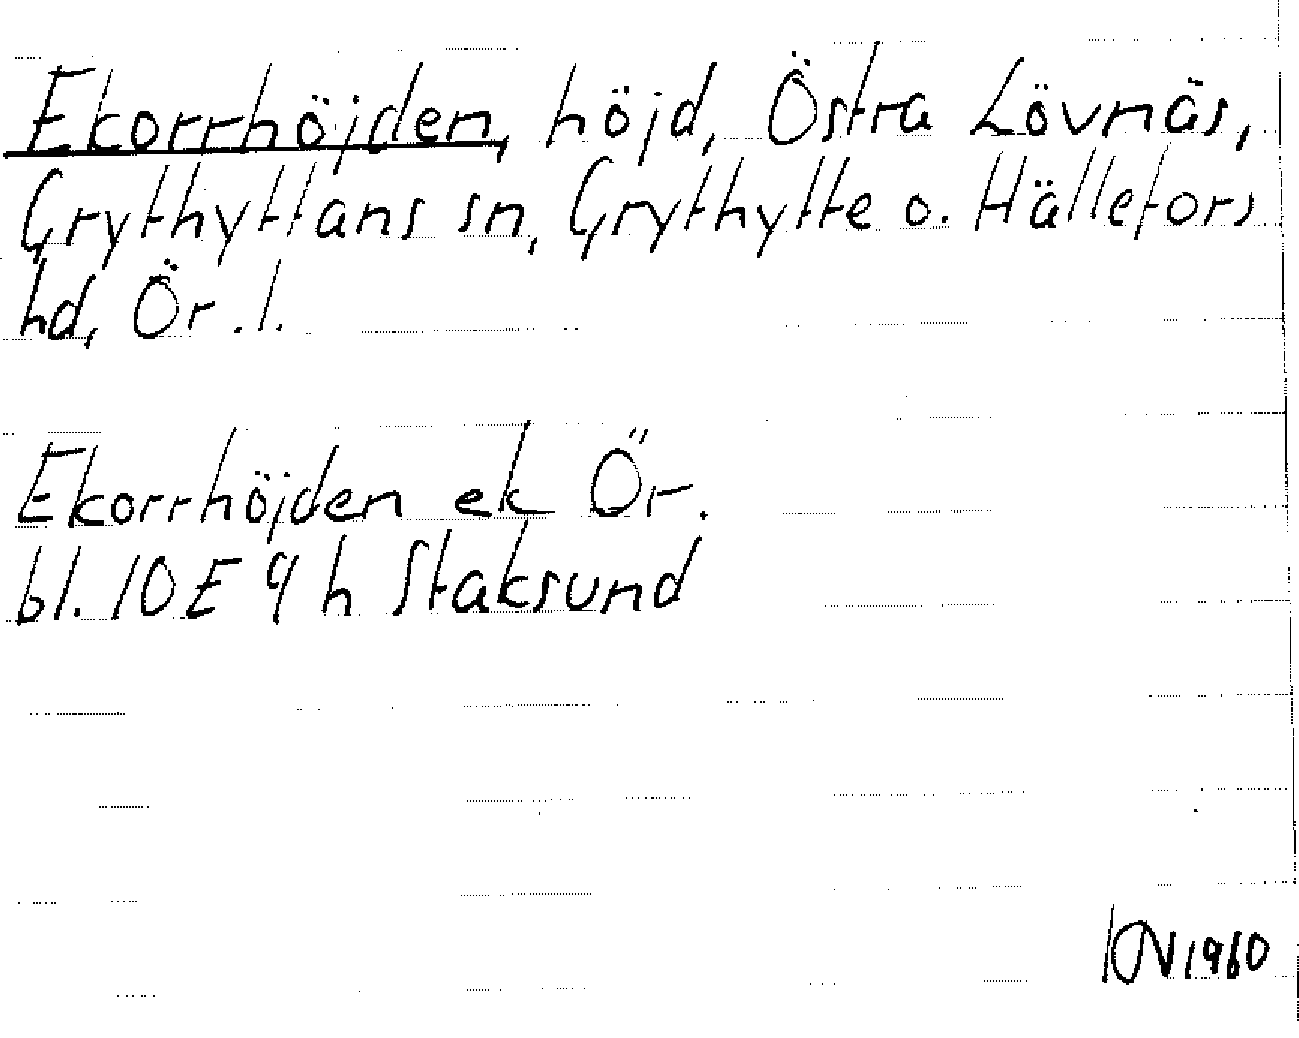 Ekorrhöjden, höjd, Östra Lövnäs,
Grythyttans sn, Grythytte o. Hällefors
hd, Ör. l.
Ekorrhöjden ek Ör.
bl. 10 E 9 h Staksund
1960